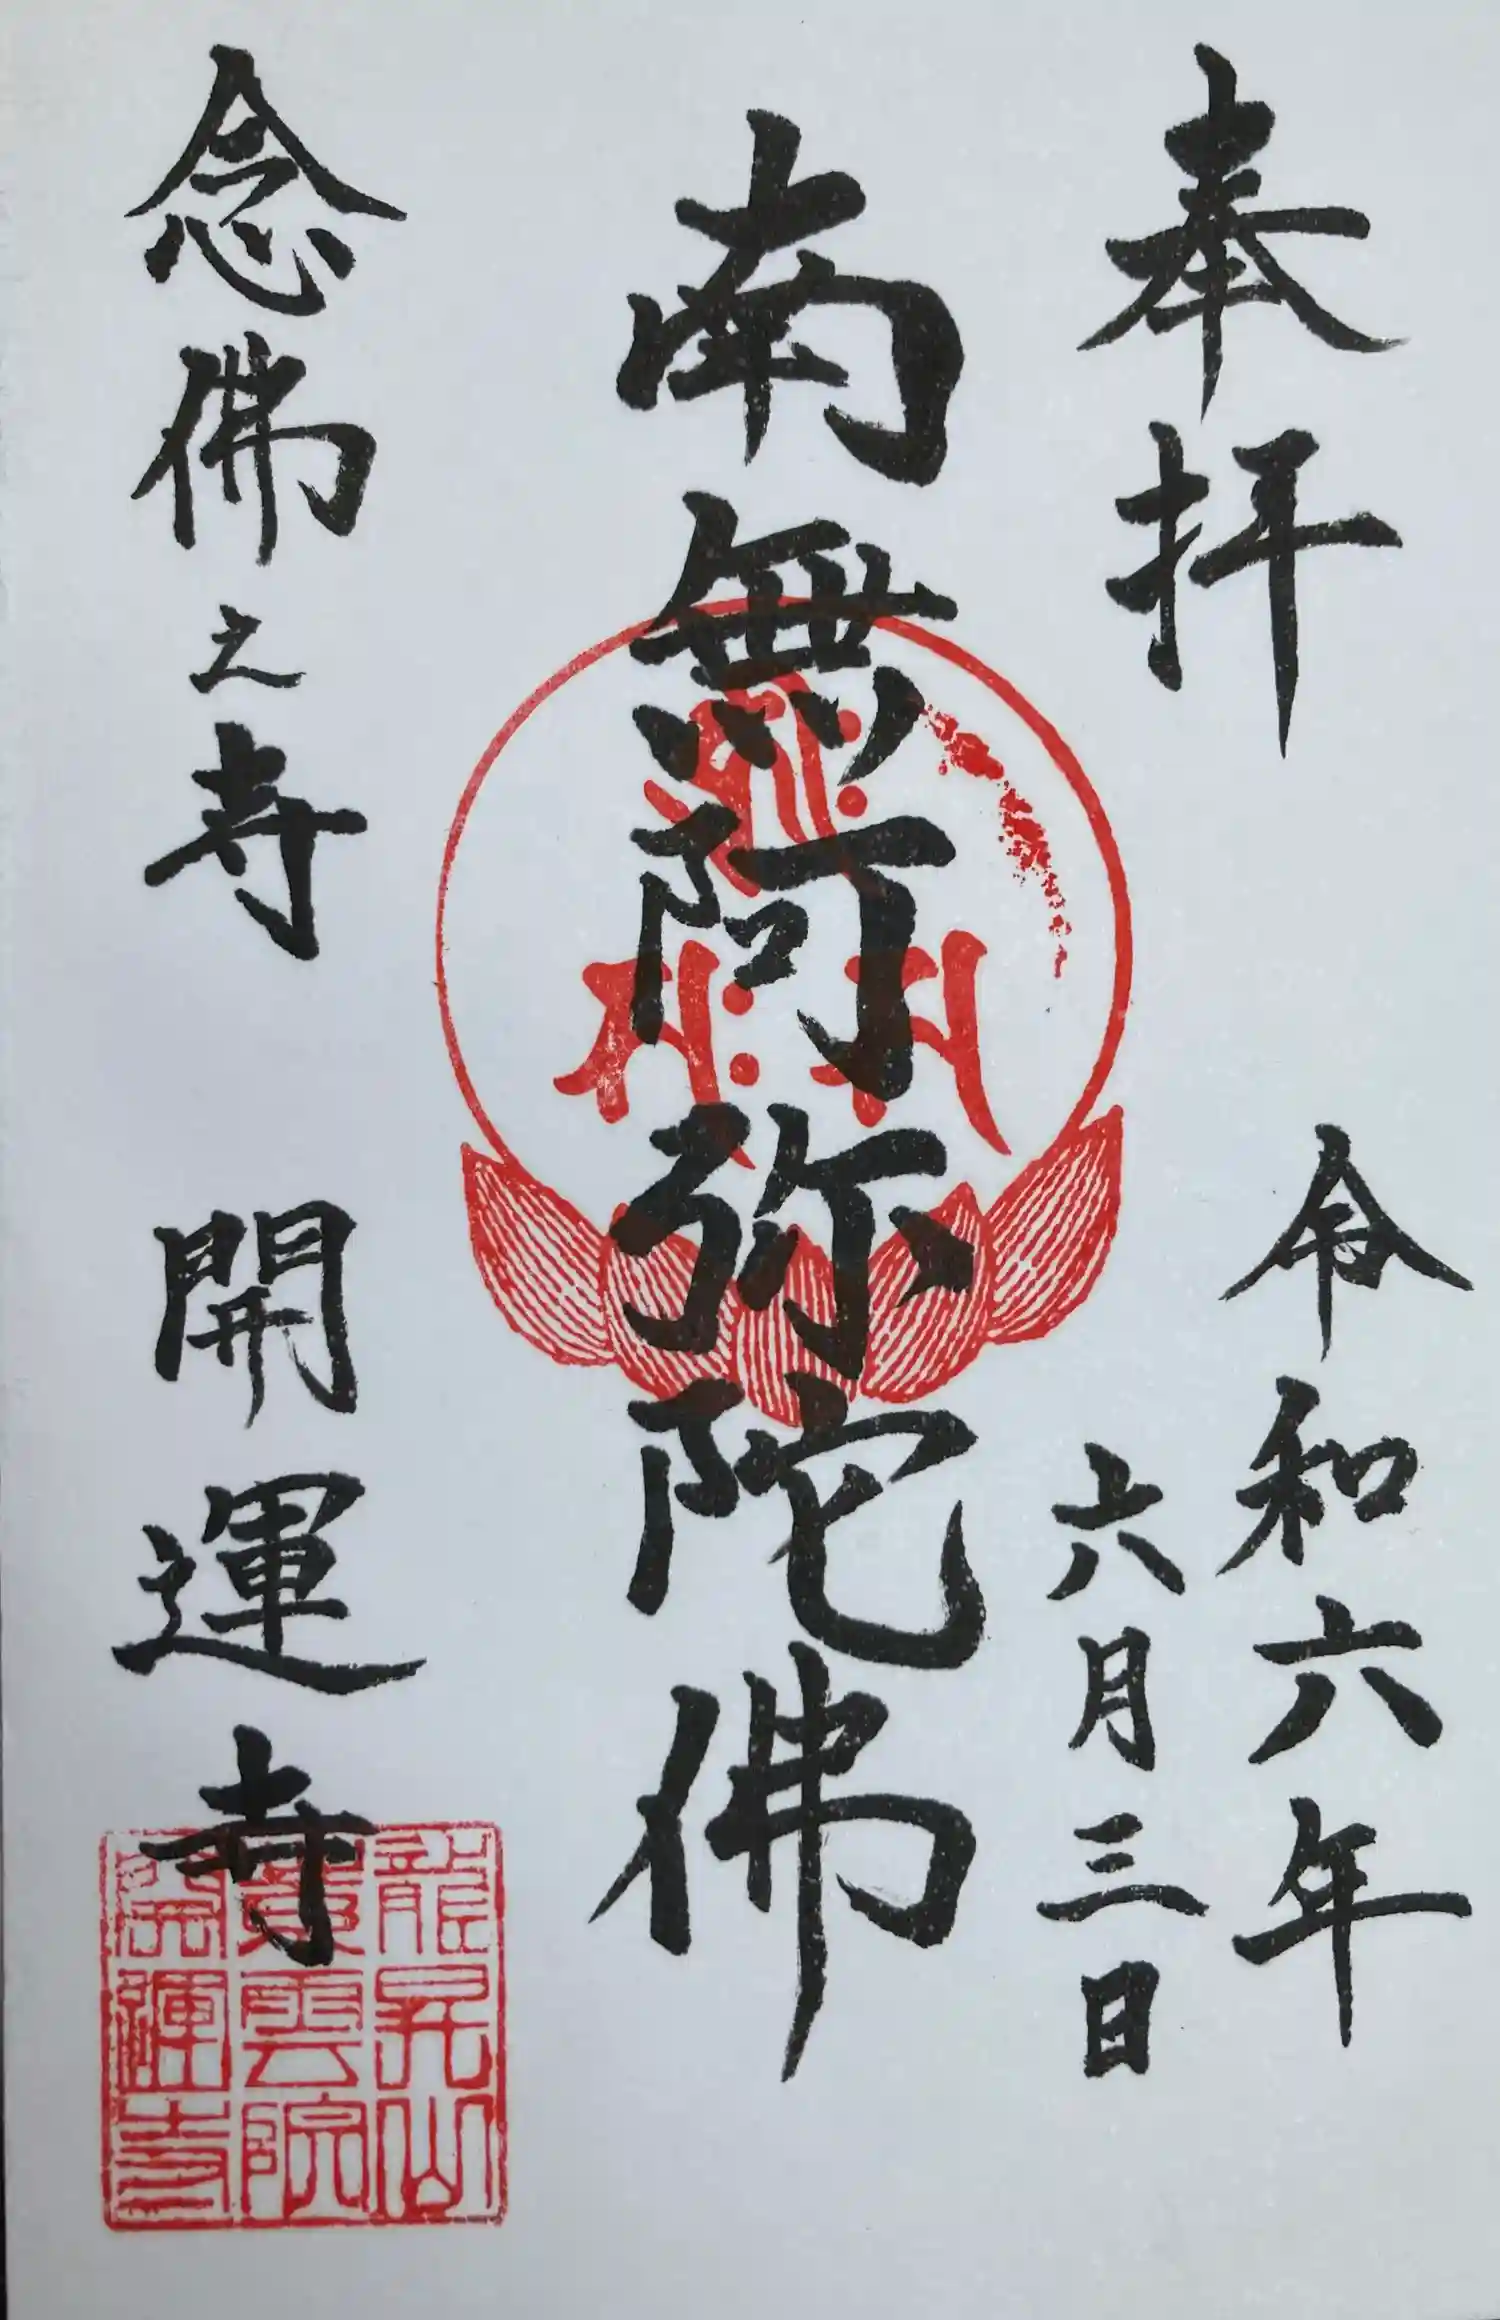 奉拝
令和六年
六月三日
南無阿弥陀佛
念佛之寺　開運寺
龍昇山
雲院
運寺